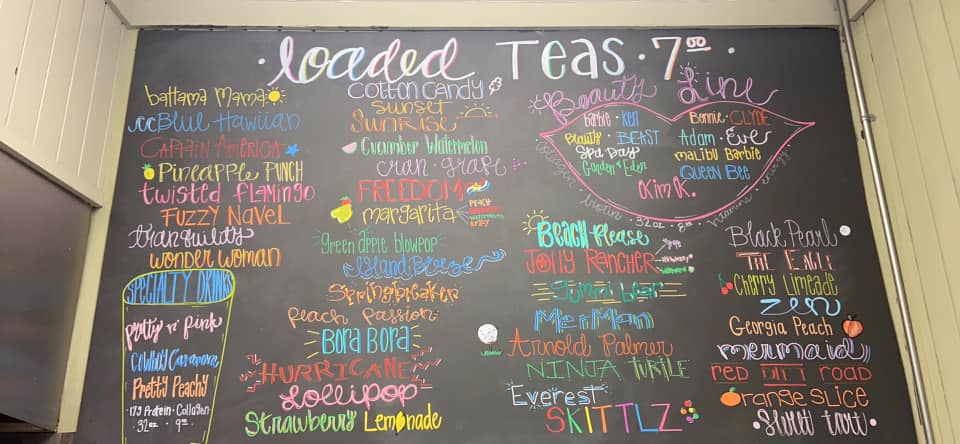 loaded Teas · 7⁰⁰ ·
bahama mama
Blue Hawiian
CAPTAIN AMERICA
Pineapple PUNCH
twisted flamingo
FUZZY NAVEL
tranquility
wonder woman
SPECIALTY DRINKS
pretty n' pink
Cowboy
Pretty Peachy
Protein · Collagen
32oz · 9
COTTON CANDY
SUNSET
SUNRISE
Cucumber Watermelon
cran-grape
FREEDOM
margarita
PEACH
green apple blowpop
Island Breeze
Springbreaker
peach passion
BORA BORA
HURRICANE
Lollipop
Strawberry Lemonade
Beauty Line
barbie · ken
Bonnie · CLYDE
Beauty · BEAST
Adam · Eve
Spa Day
MALIBU Barbie
Garden of Eden
QUEEN BEE
Kim K.
collagen · biotin · 32oz · 8 · vitamins · energy
BEACH Please
JOLLY RANCHER
grape
strawberry
watermelon
gummi bear
MerMan
Arnold Palmer
NINJA TURTLE
Everest
SKITTLZ
Black Pearl
THE EAGLE
Cherry Limeade
ZEN
Georgia Peach
mermaid
RED DIRT ROAD
Orange SLICE
Sweet tart